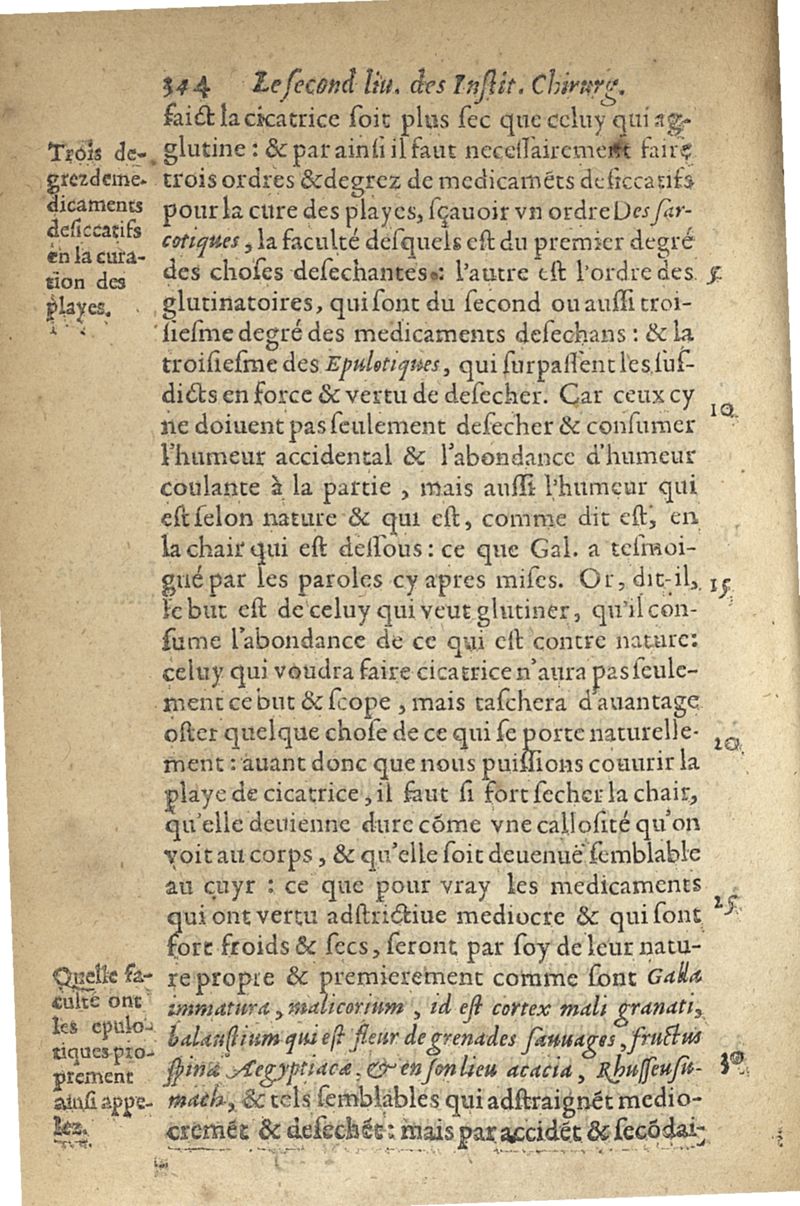 344 Le second liu. des Instit. Chirurg.
faict la cicatrice soit plus sec que celuy qui ag-
glutine : & par ainsi il faut necessairement faire
trois ordres & degrez de medicamẽts desiccatifs
pour la cure des playes, sçauoir vn ordre Des sar-
cotiques, la faculté desquels est du premier degré
des choses desechantes : l'autre est l'ordre des
glutinatoires, qui sont du second ou aussi troi-
siesme degré des medicaments desechans : & la
troisiesme des Epulotiques, qui surpassent les sus-
dicts en force & vertu de desecher. Car ceux cy
ne doiuent pas seulement desecher & consumer
l'humeur accidental & l'abondance d'humeur
coulante à la partie , mais aussi l'humeur qui
est selon nature & qui est, comme dit est, en
la chair qui est dessous : ce que Gal. a tesmoi-
gué par les paroles cy apres mises. Or, dit-il,
le but est de celuy qui veut glutiner, qu'il con-
sume l'abondance de ce qui est contre nature:
celuy qui voudra faire cicatrice n'aura pas seule-
ment ce but & scope , mais taschera d'auantage
oster quelque chose de ce qui se porte naturelle-
ment : auant donc que nous puissions couurir la
playe de cicatrice , il faut si fort secher la chair,
qu'elle deuienne dure cõme vne callosité qu'on
voit au corps , & qu'elle soit deuenuë semblable
au cuyr : ce que pour vray les medicaments
qui ont vertu adstrictiue mediocre & qui sont
fort froids & secs, seront par soy de leur natu-
re propre & premierement comme sont Galla
immatura, malicorium , id est cortex mali granati,
balaustium qui est fleur de grenades sauuages, fructus
spinæ Aegyptiacæ, & en son lieu acacia, Rhusseusu-
mach, & tels semblables qui adstraignẽt medio-
cremẽt & desechẽt : mais par accidẽt & secõdai-
Trois de-
grez de me-
dicaments
desiccatifs
en la cura-
tion des
playes.
Quelle fa-
culté ont
les epulo-
tiques pro-
prement
ainsi appe-
lez.
5
10
15
20
25
30